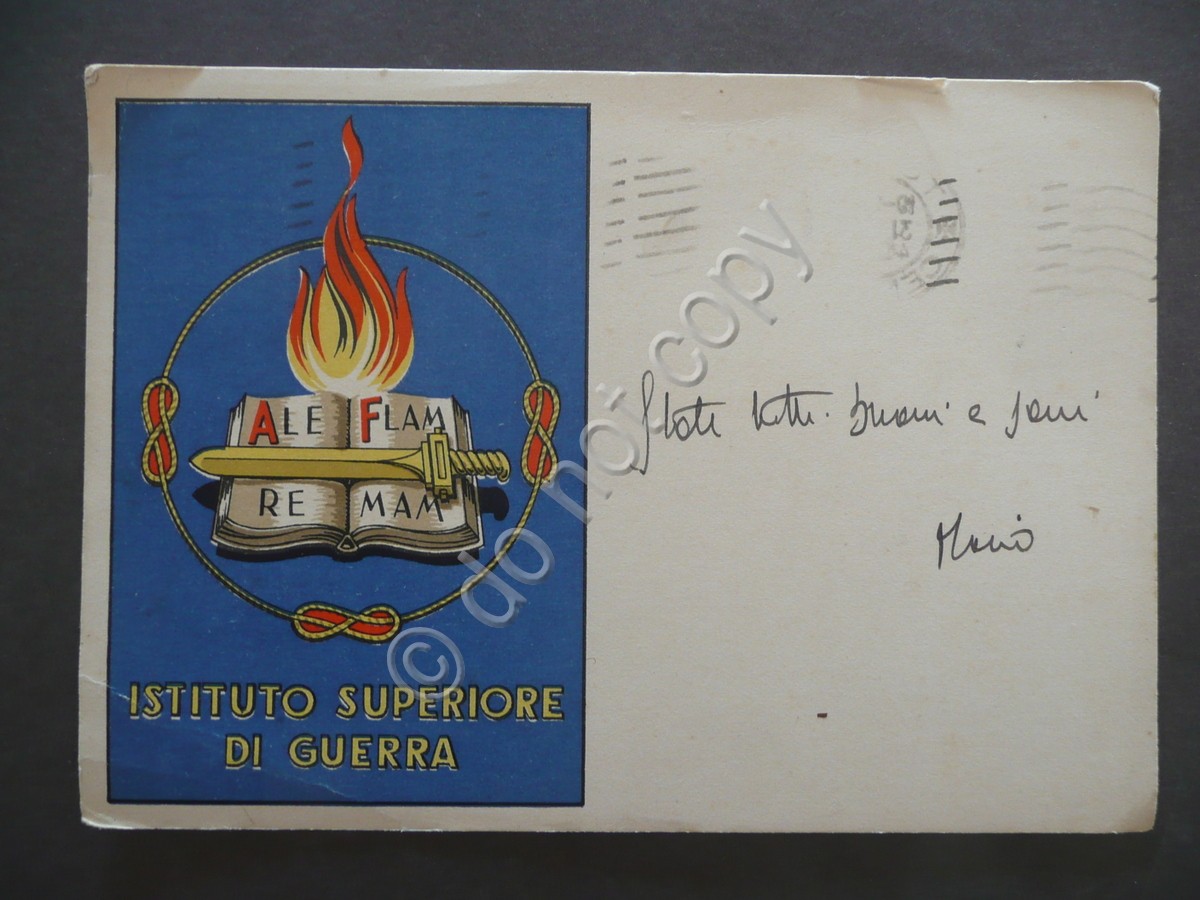 ALE FLAM
RE MAM
ISTITUTO SUPERIORE
DI GUERRA
State tutti buoni e sani
Mario
© do not copy